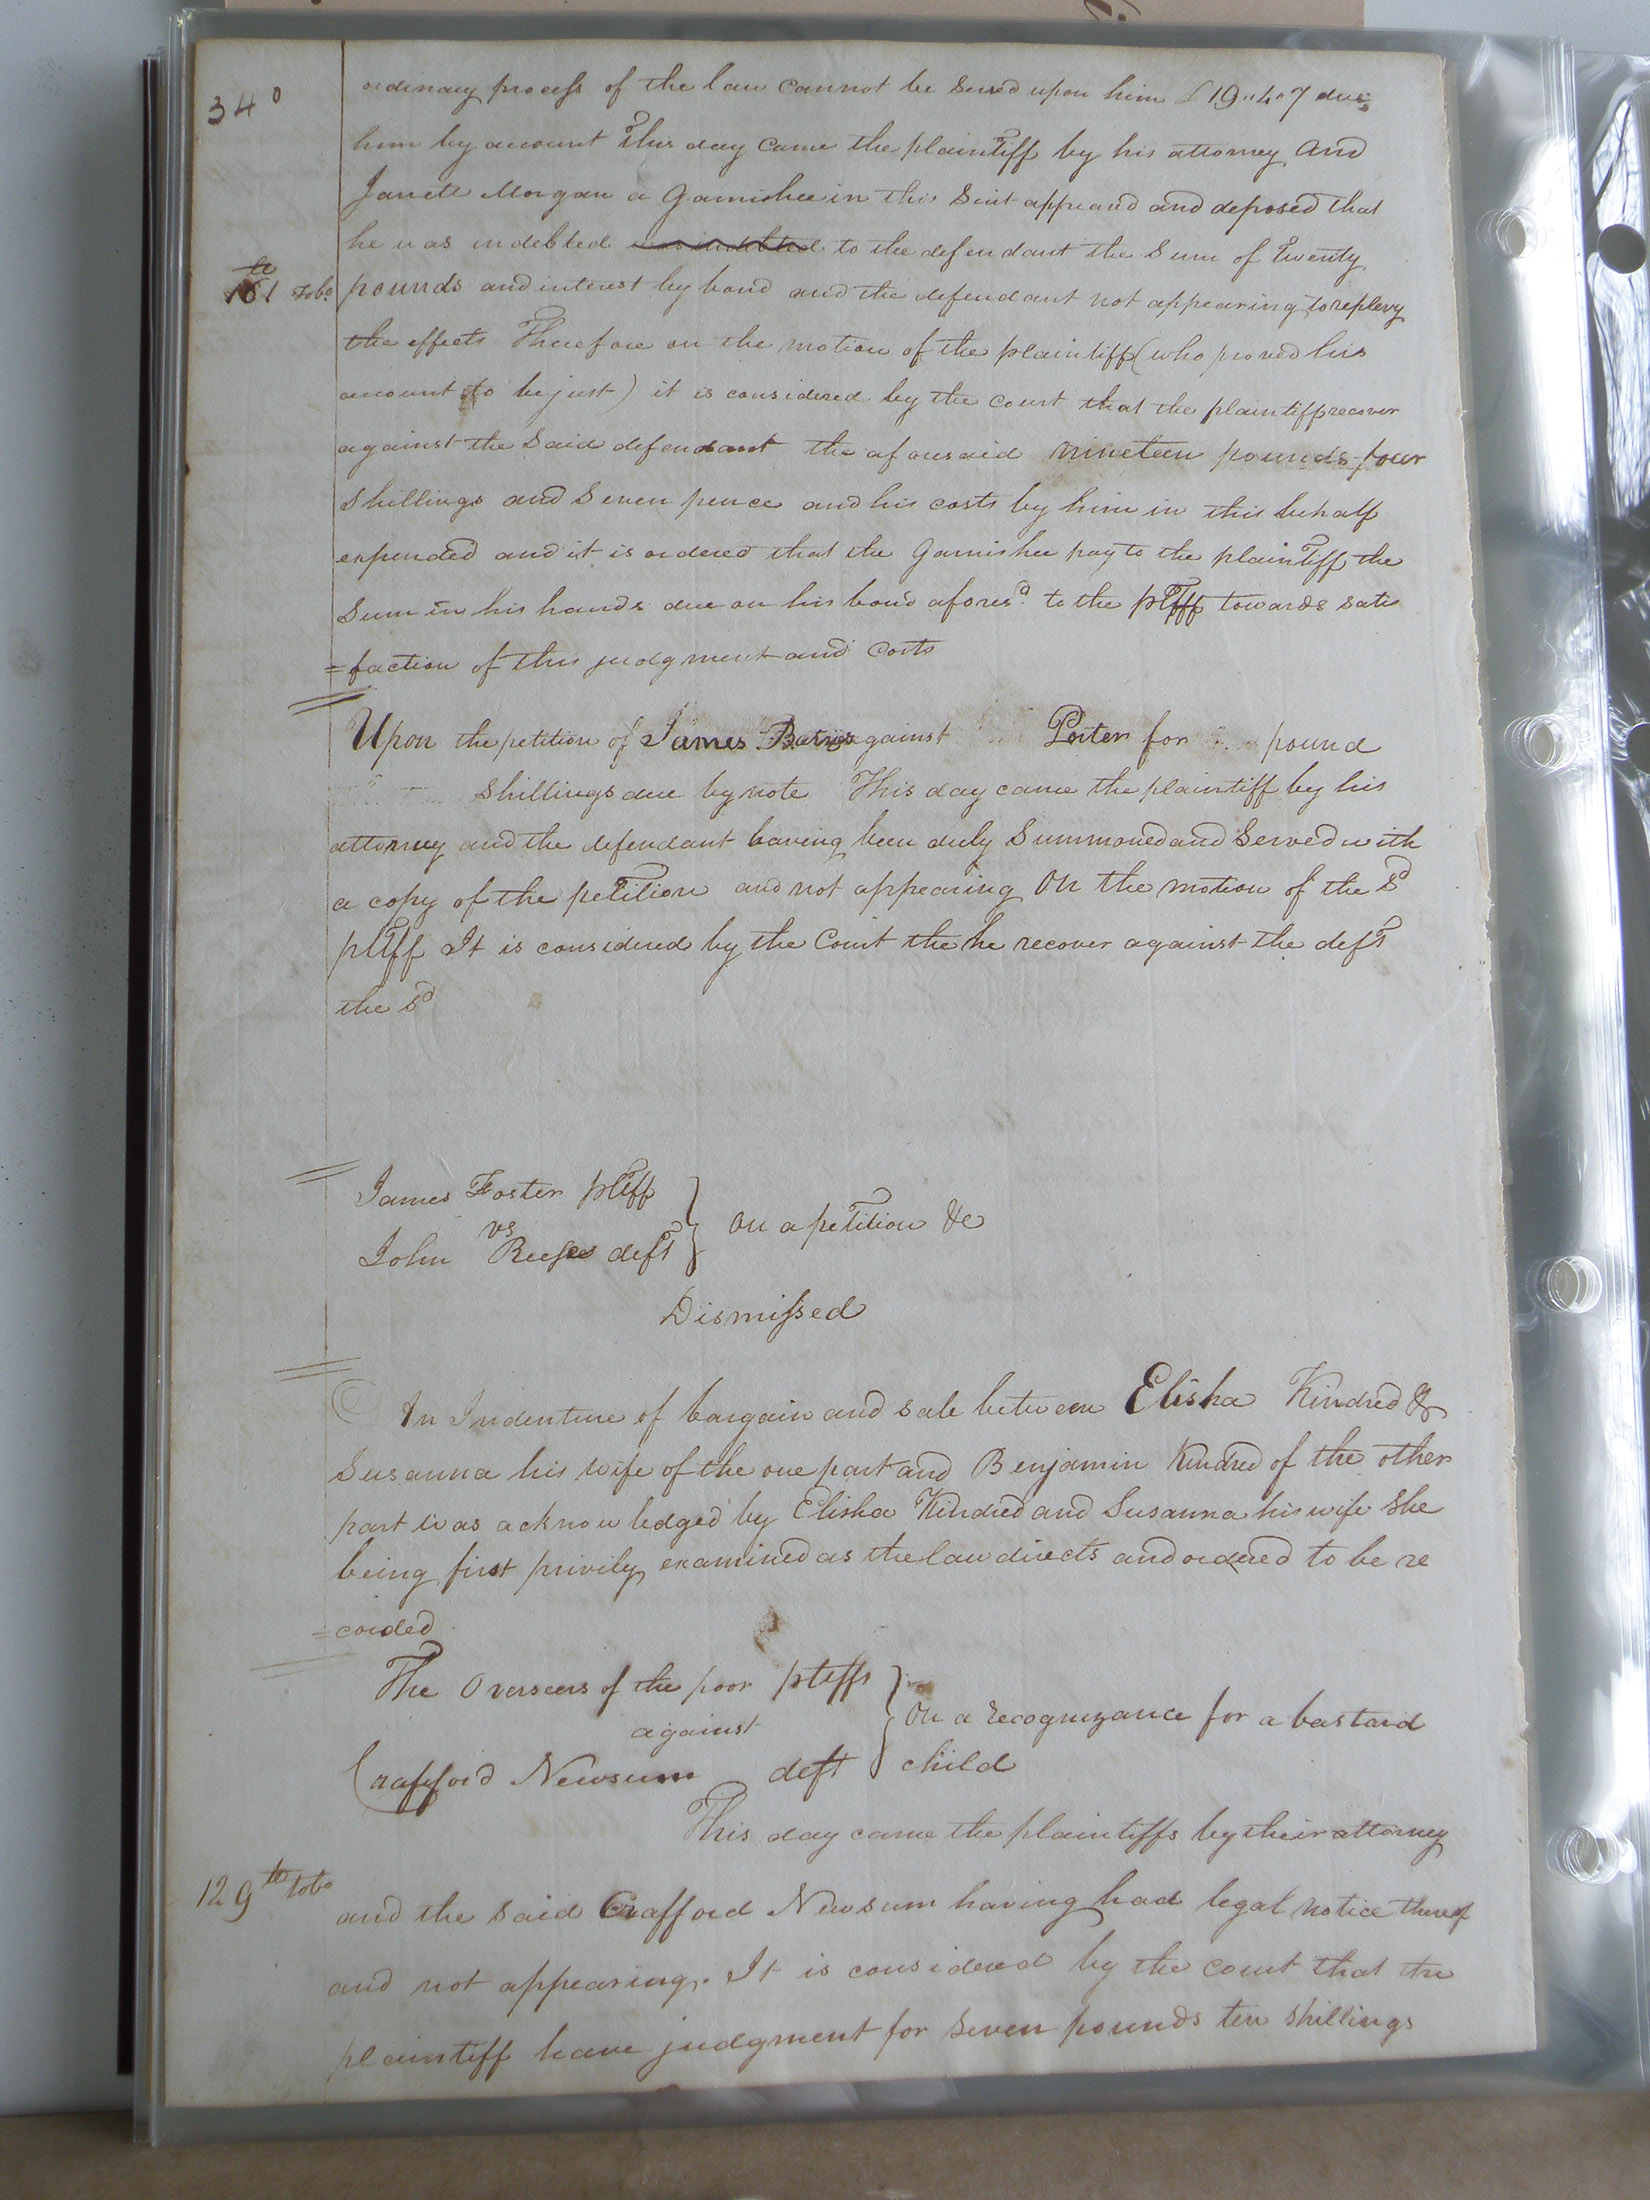 340
ordinary process of the law cannot be served upon him £19"4"7 due
him by account This day Came the plaintiff by his attorney And
Jarrell Morgan a Garnishee in this Suit appeared and deposed that
he was indebted was indebted to the defendant the Sum of Twenty
161 Tobo
pounds and interest by bond and the defendant not appearing to replevy
the effects Therefore on the motion of the plaintiff (who proved his
account to be just) it is considered by the Court that the plaintiff recover
against the Said defendant the aforesaid nineteen pounds four
Shillings and Seven pence and his costs by him in this behalf
expended and it is ordered that the Garnishee pay to the plaintiff the
Sum in his hands due on his bond aforesd to the pltff towards satis
=faction of this judgment and Costs
Upon the petition of James against Porter for pound
Shillings due by note This day came the plaintiff by his
attorney and the defendant having been duly Summoned and Served with
a copy of the petition and not appearing On the motion of the sd
pltff It is considered by the Court the he recover against the deft
the sd
James Foster pltff
vs
John deft
On a petition &c
Dismissed
An Indenture of bargain and sale between Elisha Kindred &
Susanna his wife of the one part and Benjamin Kindred of the other
part was acknowledged by Elisha Kindred and Susanna his wife She
being first privily examined as the law directs and ordered to be re
=corded
The Overseers of the poor pltffs
against
Crafford Newsum deft
On a recognizance for a bastard
child
This day came the plaintiffs by their attorney
129 tt tobo
and the said Crafford Newsum having had legal notice thereof
and not appearing. It is considered by the court that the
plaintiff have judgment for seven pounds ten shillings